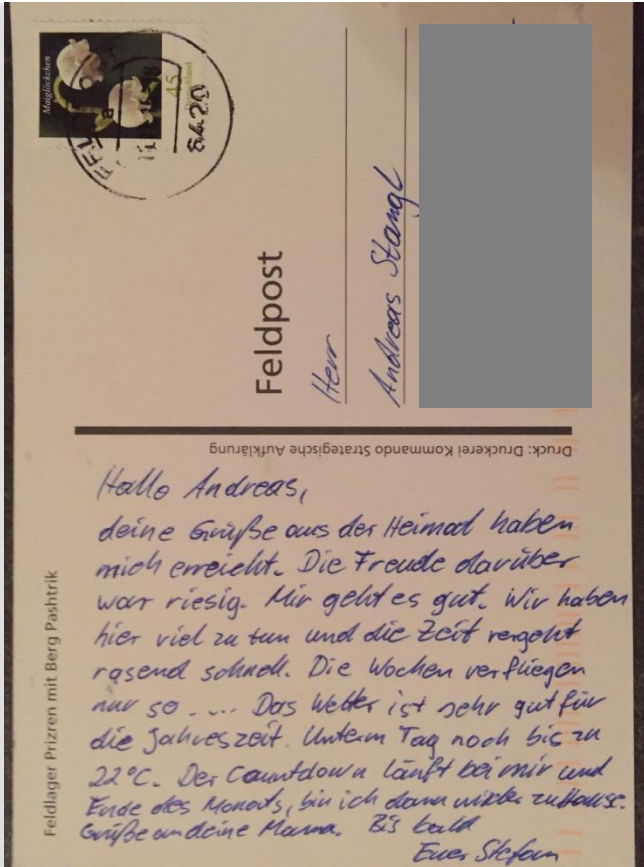 Maiglöckchen
45
6420
Feldpost
Herr
Andreas Stangl
Druck: Druckerei Kommando Strategische Aufklärung
Feldlager Prizren mit Berg Pashtrik
Hallo Andreas,
deine Grüße aus der Heimat haben
mich erreicht. Die Freude darüber
war riesig. Mir geht es gut. Wir haben
hier viel zu tun und die Zeit vergeht
rasend schnell. Die Wochen verfliegen
nur so .... Das Wetter ist sehr gut für
die Jahreszeit. Unterm Tag noch bis zu
22°C. Der Countdown läuft bei mir und
Ende des Monats, bin ich dann wieder zuhause.
Grüße an deine Mama. Bis bald
Euer Stefan